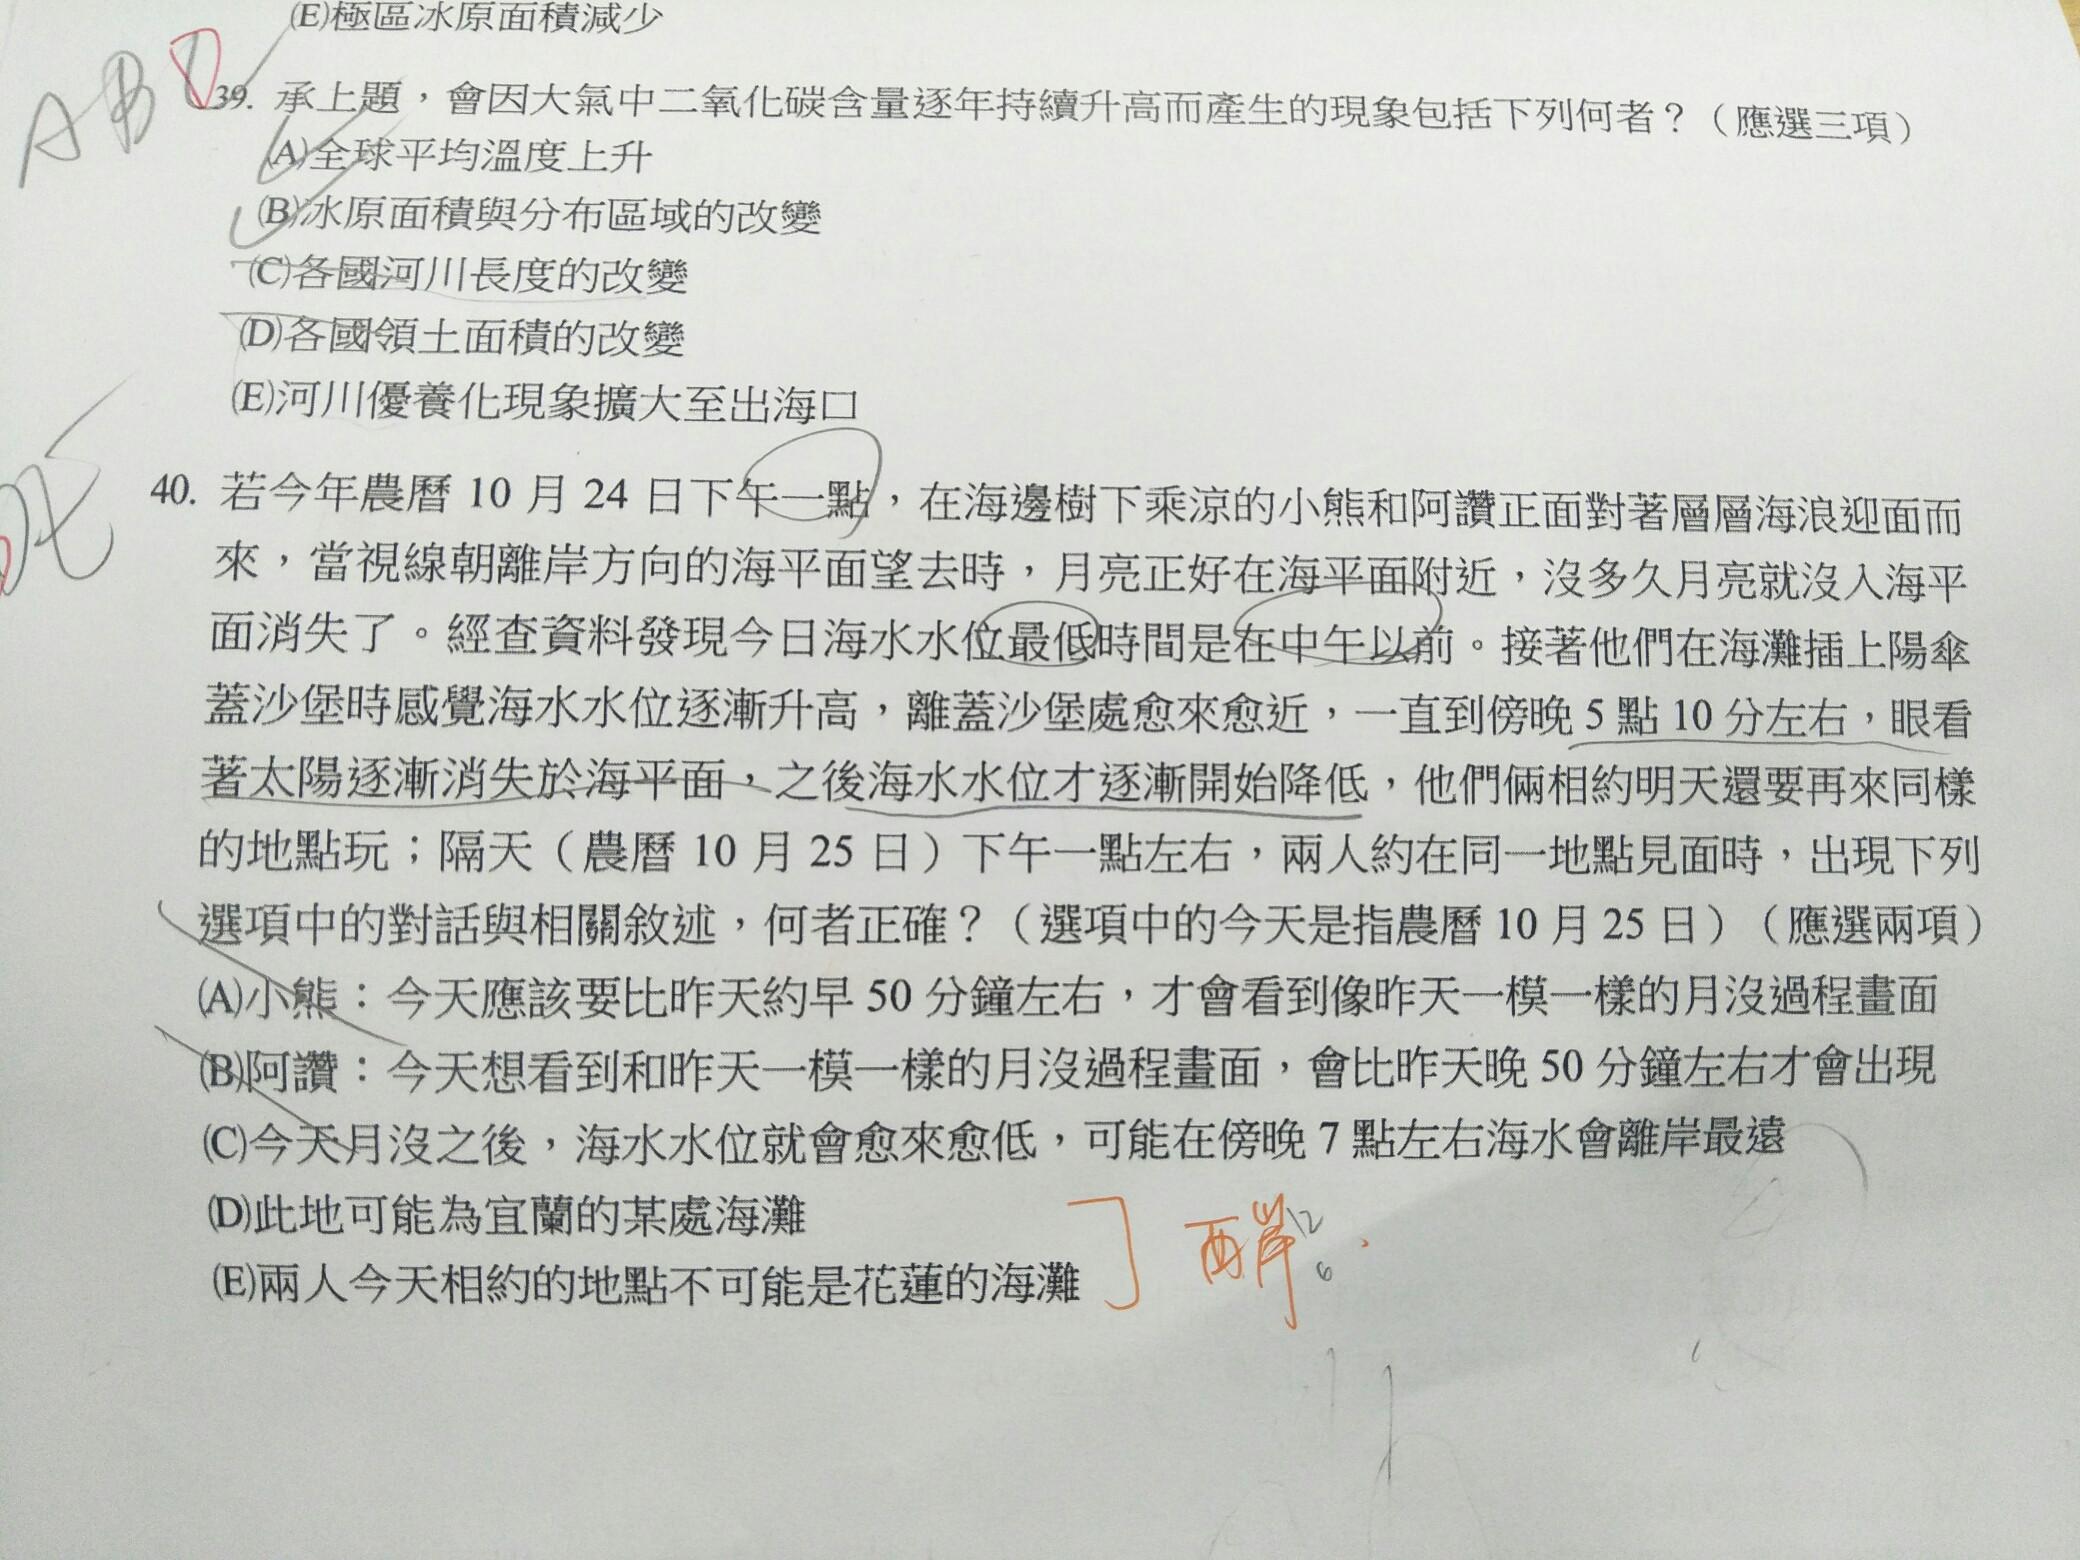 (E)極區冰原面積減少
ABD
39. 承上題，會因大氣中二氧化碳含量逐年持續升高而產生的現象包括下列何者？（應選三項）
(A)全球平均溫度上升
(B)冰原面積與分布區域的改變
(C)各國河川長度的改變
(D)各國領土面積的改變
(E)河川優養化現象擴大至出海口
40. 若今年農曆 10 月 24 日下午一點，在海邊樹下乘涼的小熊和阿讚正面對著層層海浪迎面而
來，當視線朝離岸方向的海平面望去時，月亮正好在海平面附近，沒多久月亮就沒入海平
面消失了。經查資料發現今日海水水位最低時間是在中午以前。接著他們在海灘插上陽傘
蓋沙堡時感覺海水水位逐漸升高，離蓋沙堡處愈來愈近，一直到傍晚 5 點 10 分左右，眼看
著太陽逐漸消失於海平面，之後海水水位才逐漸開始降低，他們倆相約明天還要再來同樣
的地點玩；隔天（農曆 10 月 25 日）下午一點左右，兩人約在同一地點見面時，出現下列
選項中的對話與相關敘述，何者正確？（選項中的今天是指農曆 10 月 25 日）（應選兩項）
(A)小熊：今天應該要比昨天約早 50 分鐘左右，才會看到像昨天一模一樣的月沒過程畫面
(B)阿讚：今天想看到和昨天一模一樣的月沒過程畫面，會比昨天晚 50 分鐘左右才會出現
(C)今天月沒之後，海水水位就會愈來愈低，可能在傍晚 7 點左右海水會離岸最遠
(D)此地可能為宜蘭的某處海灘
(E)兩人今天相約的地點不可能是花蓮的海灘
西岸
12
6